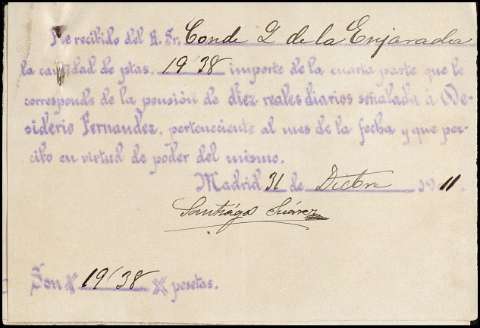 He recibido del E. Sr. Conde D. de la Enjarada
la cantidad de ptas. 19'38 importe de la cuarta parte que le
corresponde de la pensión de diez reales diarios señalada á De-
siderio Fernandez, perteneciente al mes de la fecha y que per-
cibo en virtud de poder del mismo.
Madrid 31 de Dicbre 1911.
Santiago Suárez
Son # 19'38 # pesetas.